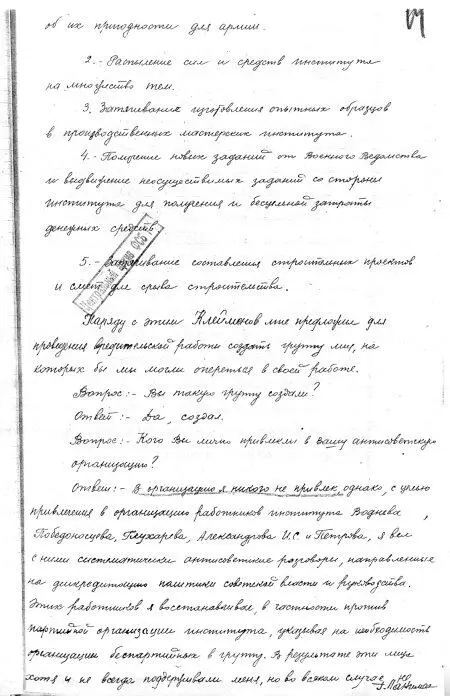 об их пригодности для армии.
2.- Распыление сил и средств института
на множество тем.
3. Затягивание изготовления опытных образцов
в производственных мастерских института.
4.- Получение новых заданий от Военного Ведомства
и выдвижение неосуществимых заданий со стороны
института для получения и бесцельной затраты
денежных средств
5.- Затягивание составления строительных проектов
и смет для срыва строительства.
Наряду с этим Клейменов мне предложил для
проведения вредительской работы создать группу лиц, на
которых бы мы могли опереться в своей работе.
Вопрос:- Вы такую группу создали?
Ответ:- Да, создал.
Вопрос:- Кого Вы лично привлекли в Вашу антисоветскую
организацию?
Ответ:- В организацию я никого не привлек, однако, с целью
привлечения в организацию работников института
Победоносцева, Глухарева, Александрова И.С. и Петрова, я вел
с ними систематически антисоветские разговоры, направленные
на дискредитацию политики советской власти и руководства.
Этих работников я восстанавливал, в частности против
партийной организации института, указывая на необходимость
организации беспартийных в группу. В результате эти лица
хотя и не всегда поддерживали меня, но во всяком случае не
Центральный архив